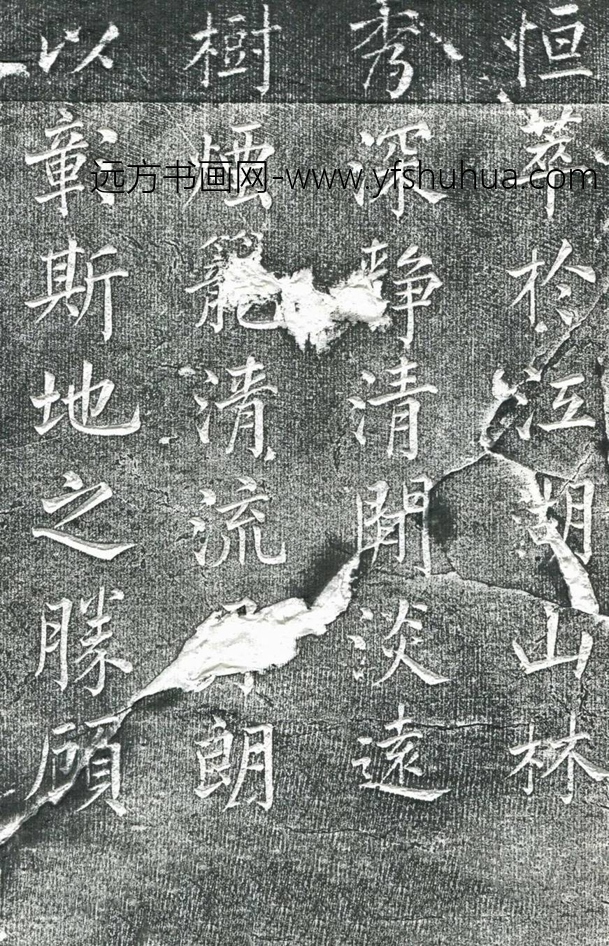 恒萃於江湖山林
秀深静清閒淡遠
樹煙籠清流朗
以彰斯地之勝顧
远方书画网-www.yfshuhua.com